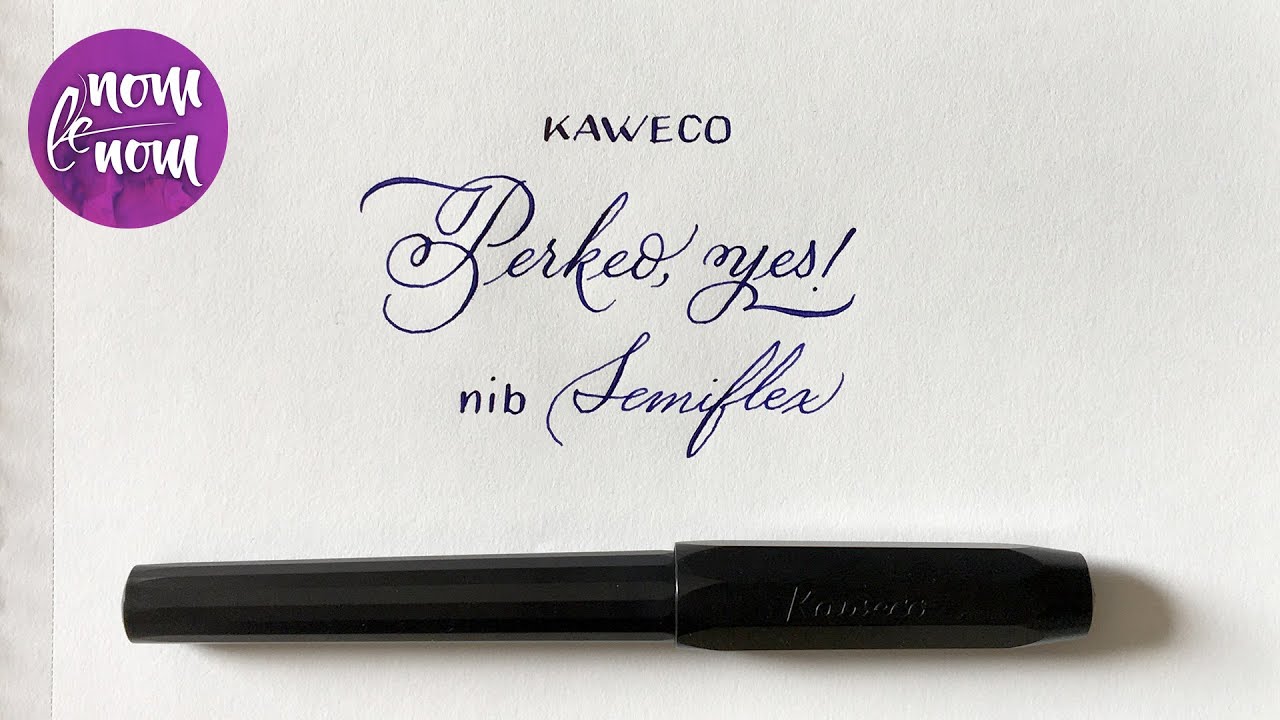 nom
le
nom
KAWECO
Perkeo, yes!
nib Semiflex
Kaweco